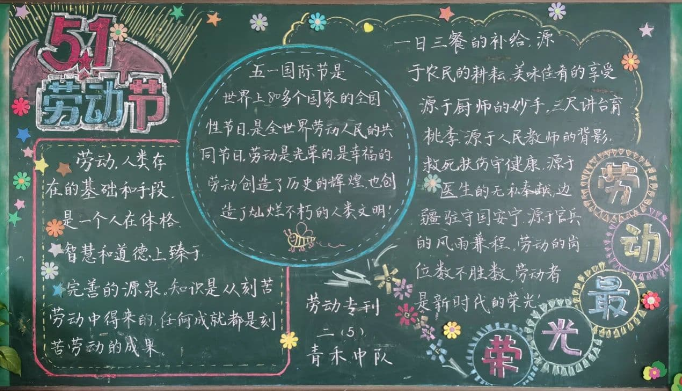 5.1
劳动节
劳动,人类存
在的基础和手段,
是一个人在体格、
智慧和道德上臻于
完善的源泉。知识是从刻苦
劳动中得来的,任何成就都是刻
苦劳动的成果。
五一国际节是
世界上80多个国家的全国
性节日,是全世界劳动人民的共
同节日,劳动是光荣的,是幸福的
劳动创造了历史的辉煌,也创
造了灿烂不朽的人类文明!
劳动专刊
二(5)
青禾中队
一日三餐的补给,源
于农民的耕耘,美味佳肴的享受
源于厨师的妙手,三尺讲台育
桃李,源于人民教师的背影,
救死扶伤守健康,源于
医生的无私奉献,边
疆驻守国安宁,源于官兵
的风雨兼程,劳动的岗
位数不胜数,劳动者
是新时代的荣光。
劳动最光荣